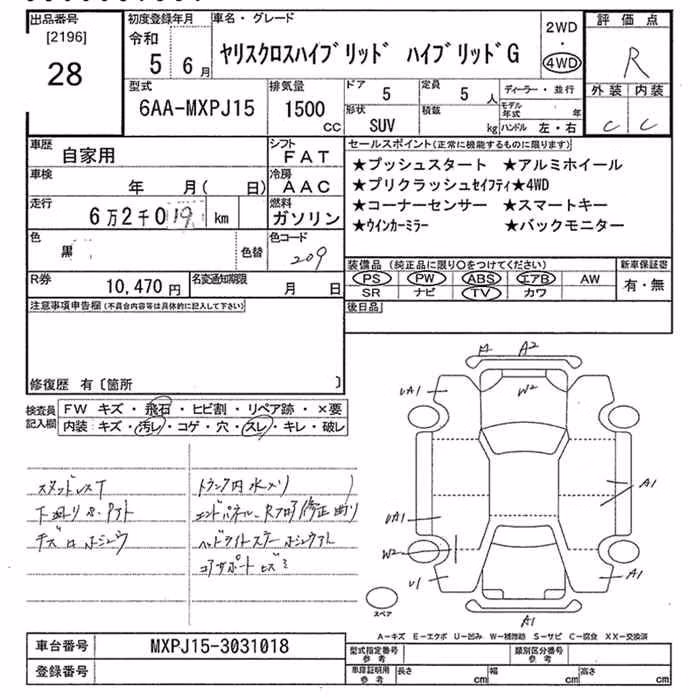 出品番号
[2196]
28
初度登録年月
令和
5 6月
車名・グレード
ヤリスクロスハイブリッド ハイブリッドG
2WD
・
4WD
評価点
R
外装 内装
C C
型式
6AA-MXPJ15
排気量
1500
cc
ドア
5
定員
5 人
形状
SUV
積載
kg
ディーラー・並行
モデル年式 年
ハンドル 左・右
車歴
自家用
シフト
FAT
車検
年 月( 日)
冷房
AAC
走行
6万2千019 km
燃料
ガソリン
色
黒
色替
色コード
209
R券
10,470円
名変通知期限
月 日
セールスポイント(正常に機能するものに限ります)
★プッシュスタート ★アルミホイール
★プリクラッシュセイフティ★4WD
★コーナーセンサー ★スマートキー
★ウインカーミラー ★バックモニター
装備品 (純正品に限り○をつけてください)
PS PW ABS エアB AW
SR ナビ TV カワ
新車保証書
有・無
後日品
注意事項申告欄(不具合内容等は具体的に記入して下さい)
修復歴 有〔箇所 〕
検査員
記入欄
FW キズ・飛石・ヒビ割・リペア跡・×要
内装:キズ・汚レ・コゲ・穴・スレ・キレ・破レ
トランク内水メリ
エンドパネル、Rフロア修正
コアサポート
A A2
UA1
W2
A1
UA1
W2
U1
A1
A1
スペア
A−キズ E−エクボ U−凹み W−補修跡 S−サビ C−腐食 XX−交換済
車台番号
MXPJ15-3031018
登録番号
型式指定番号
参考
類別区分番号
参考
車庫証明用
参考
長さ cm 幅 cm 高さ cm